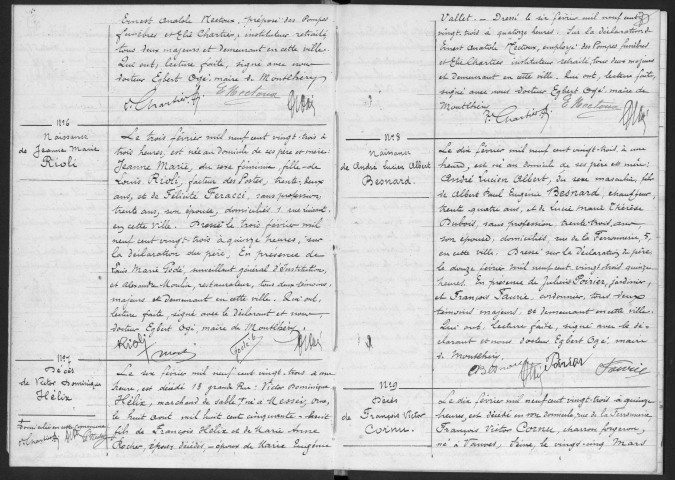 Ernest Anatole Rectoux, préposé des Pompes
funèbres et Elie Chartier, instituteur retraité,
tous deux majeurs et demeurant en cette ville.
Qui ont, lecture faite, signé avec nous
docteur Egbert Ogé, maire de Montlhéry
E. Chartier
Ogé
N° 6
Naissance
de Jeanne Marie
Rioli
Le trois février mil neuf cent vingt-trois à
trois heures, est née au domicile de ses père et mère:
Jeanne Marie, du sexe féminin, fille de
Louis Rioli, facteur des Postes, trente deux
ans, et de Félicité Feracci, sans profession,
trente ans, son épouse, domiciliés
en cette ville. Dressé le trois février mil
neuf cent vingt-trois à quinze heures, sur
la déclaration du père, En présence de
Marie surveillant général d'Institution,
et Alexandre Moulu, restaurateur, tous deux témoins
majeurs et demeurant en cette ville. Qui ont,
lecture faite, signé avec le déclarant et nous
docteur Egbert Ogé, maire de Montlhéry
Rioli
Ogé
N° 7
Décès
de Victor Dominique
Hélix
E. Chartier
Le six février mil neuf cent vingt-trois à une
heure, est décédé 18 grand Rue: Victor Dominique
Hélix, marchand de sable, né à Messei, Orne,
le huit août mil huit cent cinquante
fils de François Hélix et de Marie Anne
Rocher, époux décédés, époux de Marie Eugénie
Vallet. Dressé le six février mil neuf cent
vingt-trois à quatorze heures. Sur la déclaration d'
Ernest Anatole Rectoux, employé des Pompes funèbres
et Elie Chartier instituteur retraité, tous deux majeurs
et demeurant en cette ville. Qui ont, lecture faite,
signé avec nous docteur Egbert Ogé, maire de
Montlhéry
E. Chartier
Ogé
N° 8
Naissance
de André Lucien Albert
Besnard.
Le dix février mil neuf cent vingt-trois à une
heure, est né au domicile de ses père et mère:
André Lucien Albert, du sexe masculin, fils
de Albert Paul Eugène Besnard, chauffeur,
trente quatre ans, et de Lucie Marie Thérèse
Dubois, sans profession, trente trois ans,
son épouse, domiciliés, rue de la Ferronnerie, 5,
en cette ville. Dressé sur la déclaration du père,
le douze février mil neuf cent vingt-trois quinze
heures. En présence de Julien Poirier, jardinier,
et François Faurie, cordonnier, tous deux
témoins majeurs, et demeurant en cette ville.
Qui ont. Lecture faite, signé avec le dé-
clarant et nous docteur Egbert Ogé, maire
de Montlhéry
Besnard
Ogé
Poirier
Faurie
N° 9
Décès
de François Victor
Cornu.
Le dix février mil neuf cent vingt-trois à quinze
heures, est décédé en son domicile, rue de la Ferronnerie
François Victor Cornu, charron forgeron,
né à Vanves, Seine, le vingt-cinq Mars